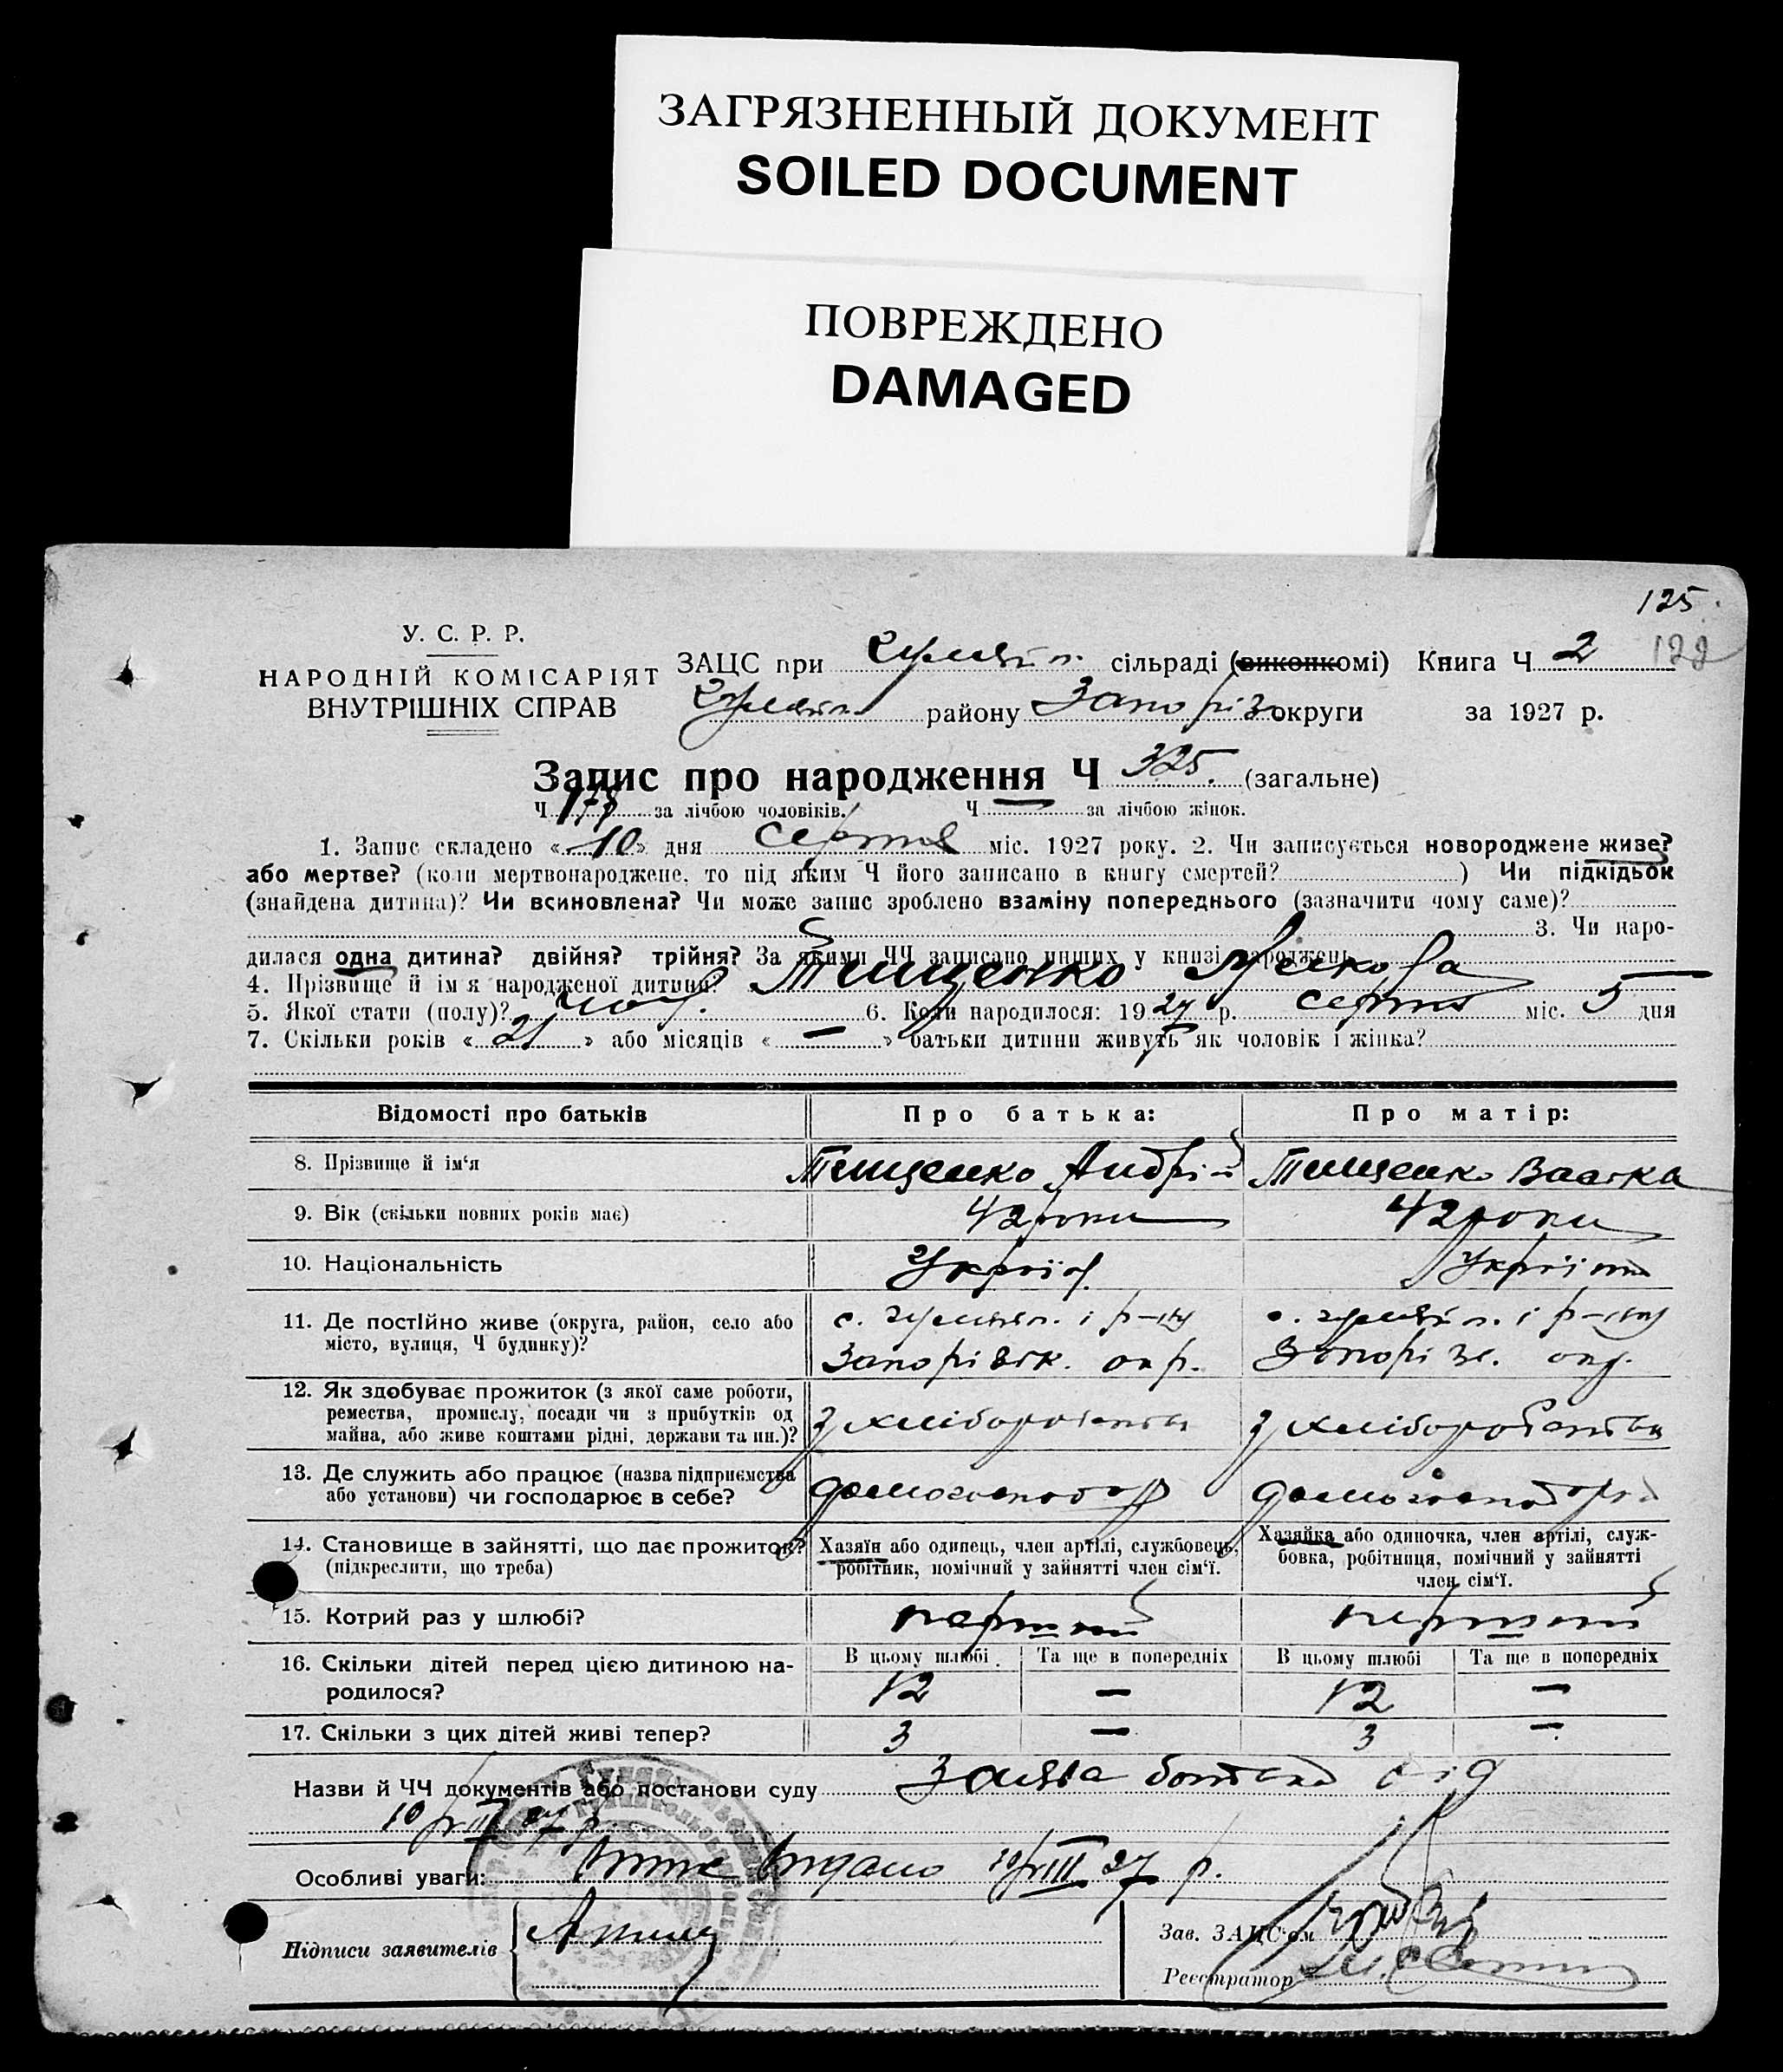 ЗАГРЯЗНЕННЫЙ ДОКУМЕНТ
SOILED DOCUMENT
ПОВРЕЖДЕНО
DAMAGED
125.
122
У. С. Р. Р.
НАРОДНІЙ КОМІСАРІЯТ
ВНУТРІШНІХ СПРАВ
ЗАЦС при сільраді (виконкомі) Книга Ч 2
району Запоріз округи за 1927 р.
Запис про народження Ч 325. (загальне)
Ч 178 за лічбою чоловіків. Ч — за лічбою жінок.
1. Запис складено « 10 » дня серпня міс. 1927 року. 2. Чи записується новороджене живе?
або мертве? (коли мертвонароджене, то під яким Ч його записано в книгу смертей? ) Чи підкідьок
(знайдена дитина)? Чи всиновлена? Чи може запис зроблено взаміну попереднього (зазначити чому саме)?
3. Чи наро-
дилася одна дитина? двійня? трійня? За якими ЧЧ записано инших у книзі народжень
4. Прізвище й ім'я народженої дитини? Тищенко Яков
5. Якої стати (полу)? чол. 6. Коли народилося: 1927 р. серпня міс. 5 дня
7. Скільки років « 21 » або місяців « — » батьки дитини живуть як чоловік і жінка?
Відомості про батьків Про батька: Про матір:
8. Прізвище й ім'я Тищенко Андрій Тищенко
9. Вік (скільки повних років має) 42 роки 42 роки
10. Національність
11. Де постійно живе (округа, район, село або
місто, вулиця, Ч будинку)?
с. і р-ну
Запорізьк. окр.
с. і р-ну
Запорізь. окр.
12. Як здобуває прожиток (з якої саме роботи,
ремества, промислу, посади чи з прибутків од
майна, або живе коштами рідні, держави та ин.)?
з хліборобства з хліборобства
13. Де служить або працює (назва підприємства
або установи) чи господарює в себе?
14. Становище в зайнятті, що дає прожиток?
(підкреслити, що треба)
Хазяїн або одинець, член артілі, службовець,
робітник, помічний у зайнятті член сім'ї.
Хазяйка або одиночка, член артілі, служ-
бовка, робітниця, помічний у зайнятті
член сім'ї.
15. Котрий раз у шлюбі? перший перший
16. Скільки дітей перед цією дитиною на-
родилося?
В цьому шлюбі Та ще в попередніх В цьому шлюбі Та ще в попередніх
12 — 12 —
17. Скільки з цих дітей живі тепер? 3 — 3 —
Назви й ЧЧ документів або постанови суду Заява батька від
10/VIII 27 р.
Особливі уваги: видано 10/VIII 27 р.
Підписи заявителів
Зав. ЗАЦС'ом
Реєстратор